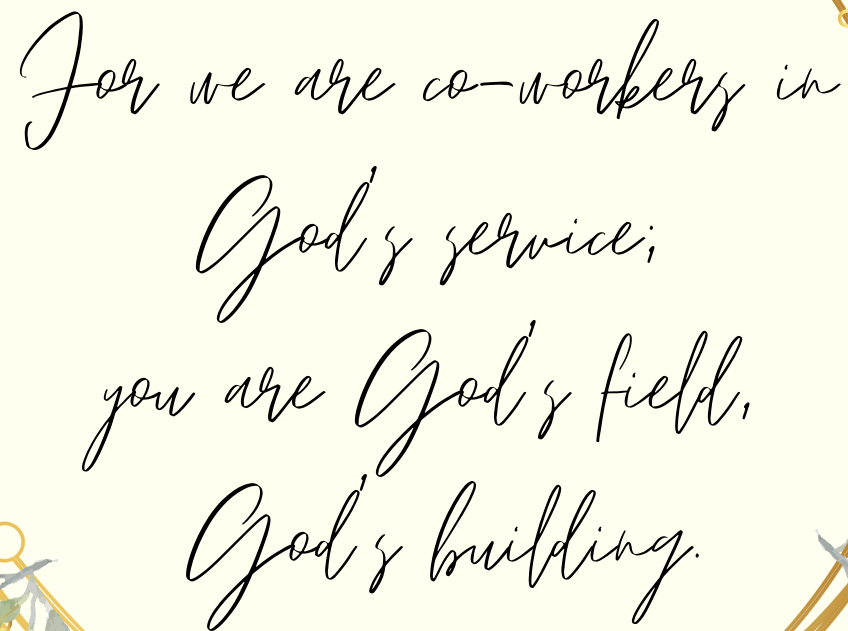 For we are co-workers in
God's service;
you are God's field,
God's building.